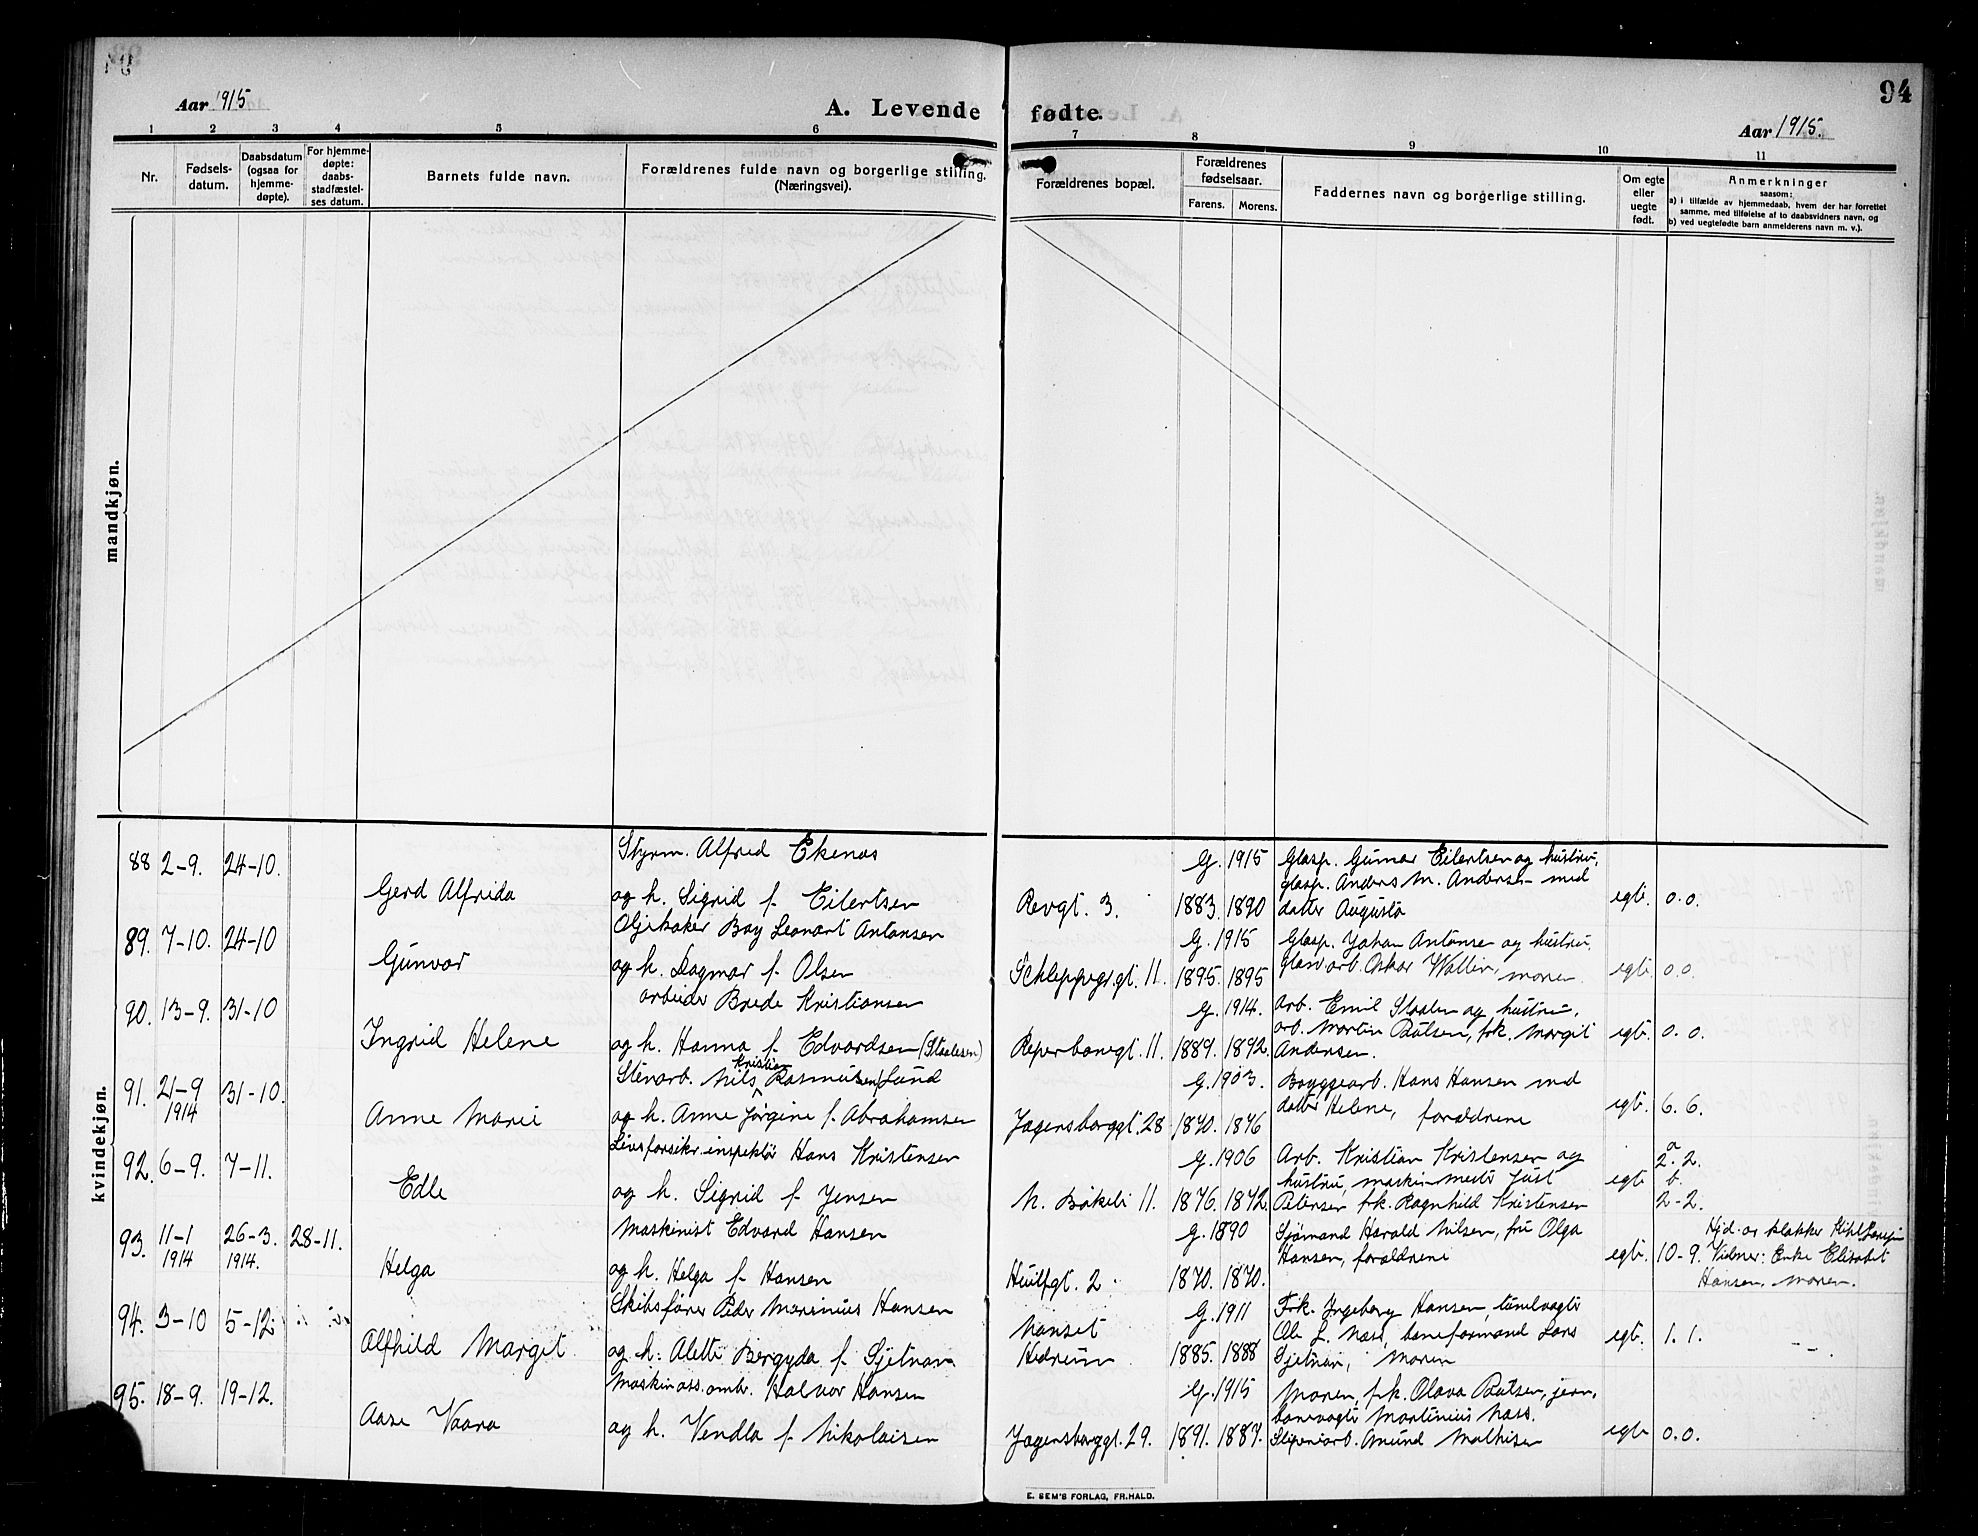 94
Aar 1915
A. Levende fødte.
Aar 1915.
1 2 3 4 5 6 7 8 9 10 11
Nr.
Fødsels-
datum.
Daabsdatum
(ogsaa for
hjemme-
døpte).
For hjemme-
døpte:
daabs-
stadfæstel-
ses datum.
Barnets fulde navn.
Forældrenes fulde navn og borgerlige stilling.
(Næringsvei).
Forældrenes bopæl.
Forældrenes
fødselsaar.
Farens. Morens.
Faddernes navn og borgerlige stilling.
Om egte
eller
uegte
født.
Anmerkninger
saasom:
a) i tilfælde av hjemmedaab, hvem der har forrettet
samme, med tilføielse af to daabsvidners navn, og
b) ved uegtefødte barn anmelderens navn m. v.).
mandkjøn.
kvindekjøn.
Styrm. Alfred Ekenas
88 2-9. 24-10. G. 1915 Glasp. Gunnar Eilertsen og hustru,
glasp. Anders M. Andersen med
Gerd Alfrida og h. Sigrid f. Eilertsen Revgt. 3. 1883. 1890 datter Augusta egte. 0.0.
Oljekoker Boy Leonart Antonsen
89. 7-10. 24-10 G. 1915 Glasp. Johan Antonsen og hustru,
Gunvor og h. Dagmar f. Olsen 1895. 1895 glasvarb. Oskar Wallin, moren egte 0.0.
arbeider Brede Kristiansen
90. 13-9. 31-10 G. 1914. Arb. Emil Staalen og hustru,
arb. Martin Paulsen, frk. Margit
Ingrid Helene og h. Hanna f. Edvardsen (Staalesen) Reperbanegt. 11. 1889. 1892. Andersen. egte. 0.0.
Kristian
Stenarb. Nils Rasmussen Lund
91. 21-9 1914 31-10. G. 1903. Byggearb. Hans Hansen med
Anne Marie og h. Anne Jørgine f. Abrahamsen Jegersborggt. 28 1870. 1876 datter Helene, forældrene egte. 6.6.
Livsforsikr. inspektør Hans Kristensen
92. 6-9. 7-11. G. 1906 Arb. Kristian Kristensen og a 2.2.
hustru, maskinmester Just b.
Edle og h. Sigrid f. Jensen N. Bøkeli 11. 1876. 1872. Petersen frk. Ragnhild Kristensen egte 2-2.
Maskinist Edvard Hansen
93. 11-1 1914 26-3. 1914. 28-11. G. 1890 Sjømand Harald Nilsen, fru Olga
Hansen, forældrene egte. 10-9. Vidner: Enke Elisabet
Helga og h. Helga f. Hansen Huitfgt. 2. 1870. 1870. Hansen, moren.
Skibsfører Peder Marinius Hansen
94. 3-10 5-12. G. 1911 Frk. Ingeborg Hansen,
Nanset Ole L. Næss, baneformand Lars
Alfhild Margit og h. Alette Bergyda f. Sjetnan Hedrum 1885. 1888 Sjetnan, moren egte. 1.1.
Maskinass. ombr. Halvor Hansen
95. 18-9. 19-12. G. 1915 Moren, frk. Olava Paulsen, jern-
banevogter Martinius Næss.
Aase Vaara og h. Vendla f. Nikolaisen Jegersborggt. 29. 1891. 1887. Sliperiarb. Amund Mathisen egte 0.0.
E. SEM'S FORLAG, FR.HALD.